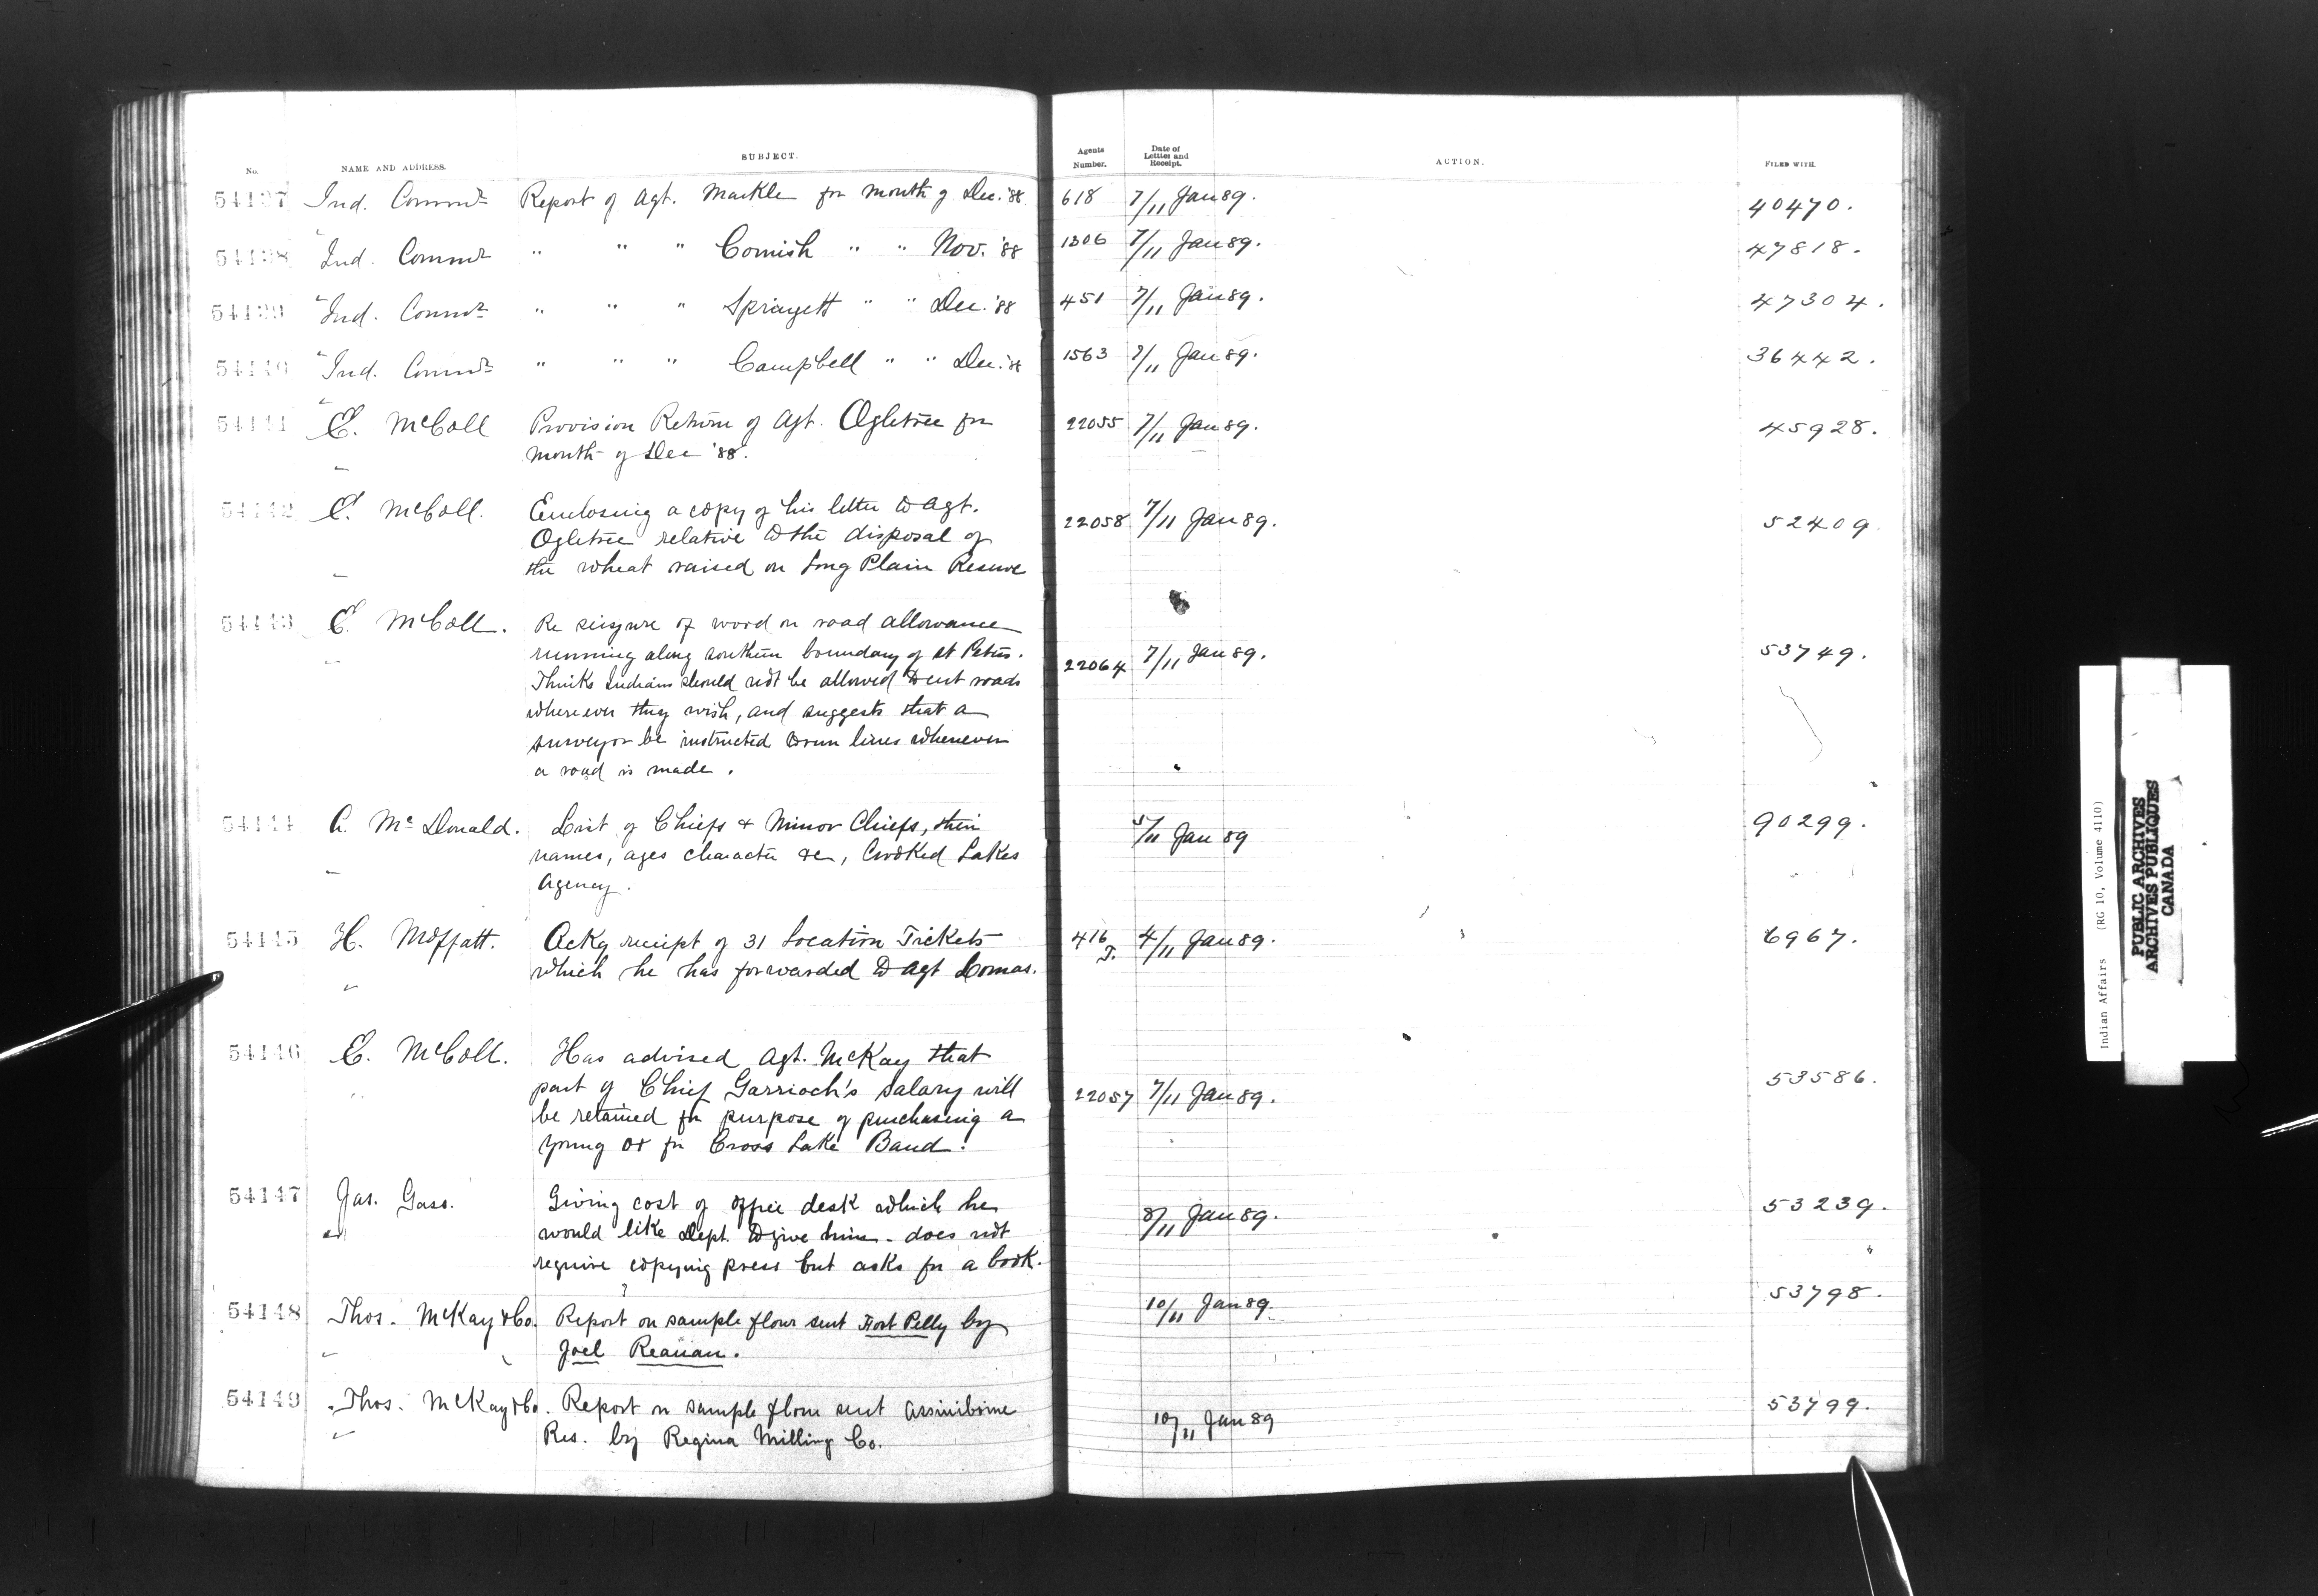 No. NAME AND ADDRESS. SUBJECT. Agents Number. Date of Letters and Receipt. ACTION. FILED WITH.
54137 Ind. Commr Report of Agt. Markle for month of Dec. '88 618 7/11 Jan 89. 40470.
54138 Ind. Commr " " " Cornish " " Nov. '88 1306 7/11 Jan 89. 47818.
54139 Ind. Commr " " " Springett " " Dec. '88 451 7/11 Jan 89. 47304.
54140 Ind. Commr " " " Campbell " " Dec. '88 1563 7/11 Jan 89. 36442.
54141 E. McColl Provision Return of Agt. Ogletree for 22055 7/11 Jan 89. 45928.
month of Dec '88.
54142 E. McColl. Enclosing a copy of his letter to Agt. 22058 7/11 Jan 89. 52409.
Ogletree relative to the disposal of
the wheat raised on Long Plain Reserve
54143 E. McColl. Re seizure of wood on road allowance 22064 7/11 Jan 89. 53749.
running along southern boundary of St Peters.
Thinks Indians should not be allowed to cut roads
wherever they wish, and suggests that a
surveyor be instructed to run lines whenever
a road is made.
54144 A. McDonald. List of Chiefs & Minor Chiefs, their 5/11 Jan 89 90299.
names, ages character &c, Crooked Lakes
Agency.
54145 H. Moffatt. Ackg receipt of 31 Location Tickets 416 J. 4/11 Jan 89. 6967.
which he has forwarded to Agt Lomas.
54146 E. McColl. Has advised Agt. McKay that 22057 7/11 Jan 89. 53586.
part of Chief Garrioch's salary will
be retained for purpose of purchasing a
young ox for Cross Lake Band.
54147 Jas. Gass. Giving cost of office desk which he 8/11 Jan 89. 53239.
would like Dept. to give him - does not
require copying press but asks for a book.
54148 Thos. McKay & Co. Report on sample flour sent Fort Pelly by 10/11 Jan 89. 53798.
Joel Reaman.
54149 Thos. McKay & Co. Report on sample flour sent Assiniboine 10/11 Jan 89 53799.
Res. by Regina Milling Co.
Indian Affairs (RG 10, Volume 4110)
PUBLIC ARCHIVES
ARCHIVES PUBLIQUES
CANADA